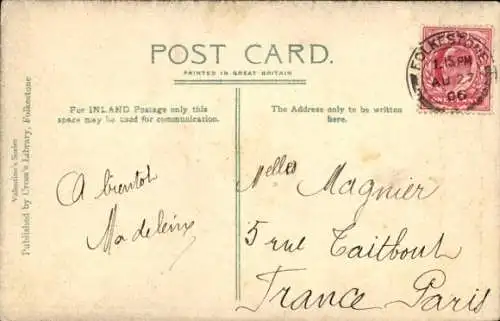 POST CARD.
PRINTED IN GREAT BRITAIN
For INLAND Postage only this
space may be used for communication.
The Address only to be written
here.
FOLKESTONE
1.15 PM
AU 27
06
Valentine's Series
Published by Cross's Library, Folkestone
A bientot
Madeleine
Melles Magnier
5 rue Taitbout
France Paris